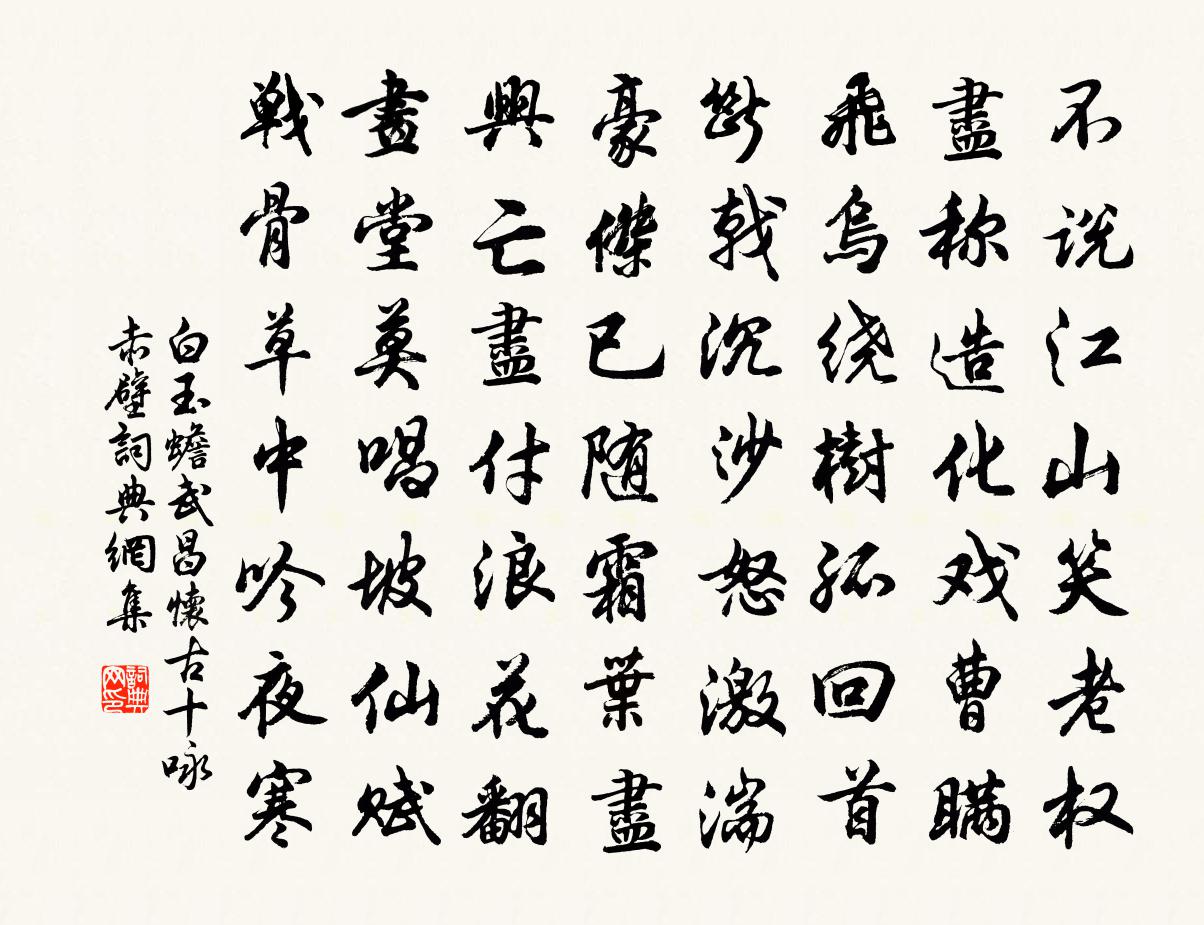 不说江山笑老权
盡称造化戏曹瞞
飛烏绕樹孤回首
斷戟沉沙怒激湍
豪傑已随霜葉盡
興亡盡付浪花翻
畫堂莫唱坡仙赋
戰骨草中吟夜寒
白玉蟾武昌懷古十咏
赤壁詞典網集
詞典网印